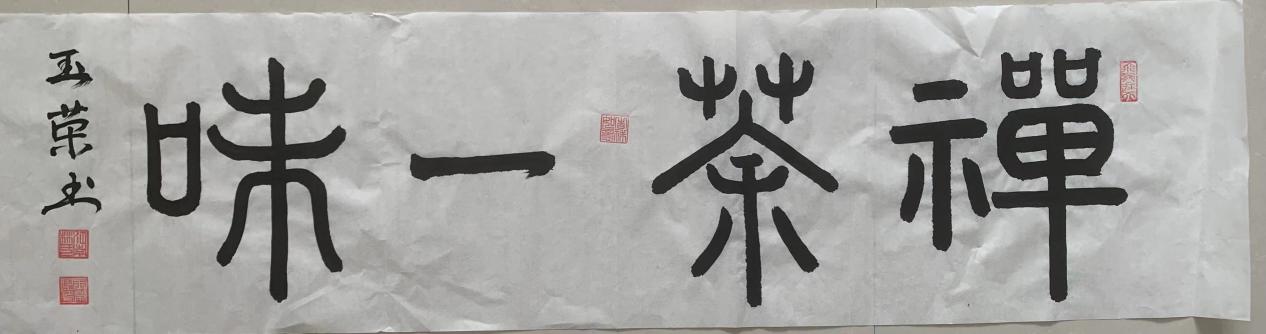 禪茶一味
玉荣书